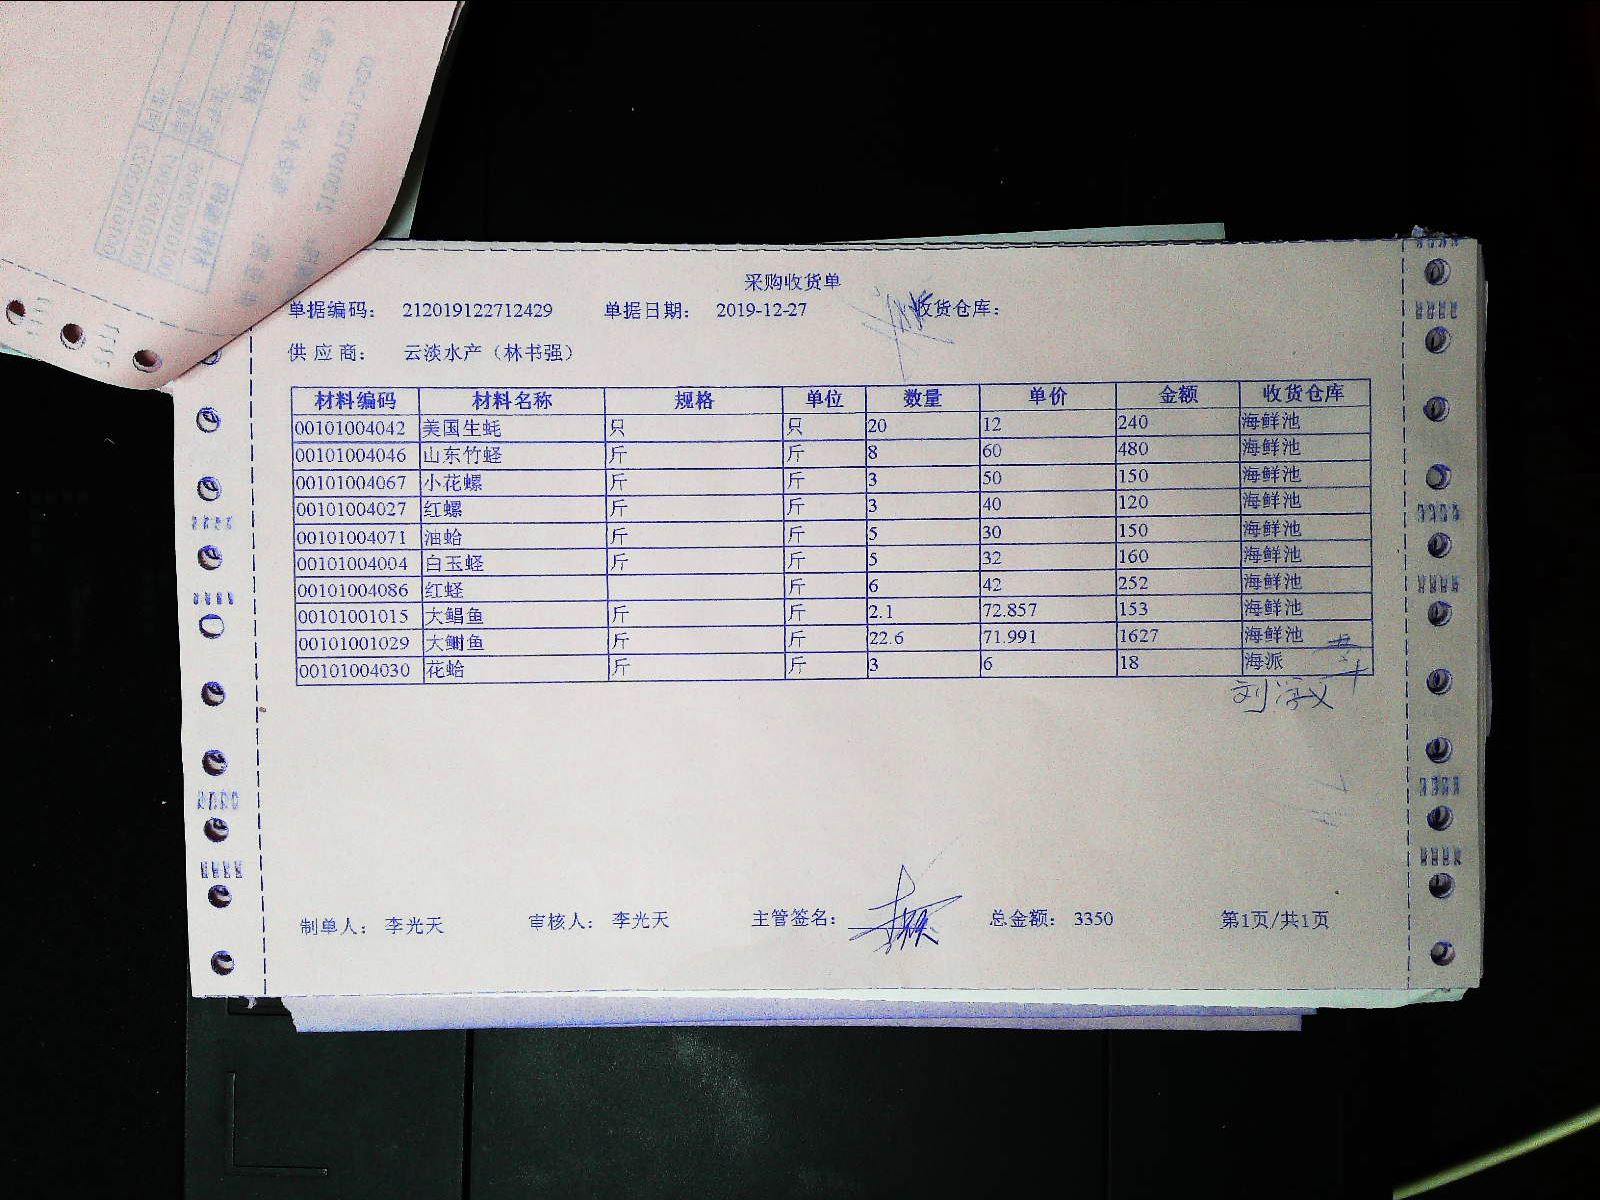 采购收货单
单据编码： 212019122712429 单据日期： 2019-12-27 收货仓库：
供 应 商： 云淡水产（林书强）
材料编码 材料名称 规格 单位 数量 单价 金额 收货仓库
00101004042 美国生蚝 只 只 20 12 240 海鲜池
00101004046 山东竹蛏 斤 斤 8 60 480 海鲜池
00101004067 小花螺 斤 斤 3 50 150 海鲜池
00101004027 红螺 斤 斤 3 40 120 海鲜池
00101004071 油蛤 斤 斤 5 30 150 海鲜池
00101004004 白玉蛏 斤 斤 5 32 160 海鲜池
00101004086 红蛏 斤 6 42 252 海鲜池
00101001015 大鲳鱼 斤 斤 2.1 72.857 153 海鲜池
00101001029 大鮸鱼 斤 斤 22.6 71.991 1627 海鲜池
00101004030 花蛤 斤 斤 3 6 18 海派
制单人： 李光天 审核人： 李光天 主管签名： 总金额： 3350 第1页/共1页